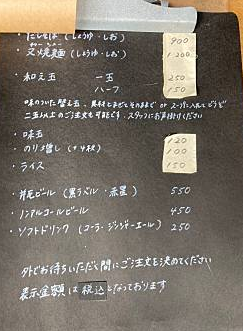 にぼしそば（しょうゆ・しお） 900
チャーシューメン
叉焼麺（しょうゆ・しお） 1200
和え玉 一玉 250
ハーフ 150
味のついた替え玉。具材とまぜてそのままで or スープに入れてどうぞ
二玉以上のご注文も可能です。スタッフにお声掛けください
・味玉 120
・のり増し（+4枚） 100
・ライス 150
・瓶ビール（黒ラベル・赤星） 550
・ノンアルコールビール 450
・ソフトドリンク（コーラ・ジンジャーエール） 250
外でお待ちいただく間にご注文を決めてください
表示金額は税込となっております